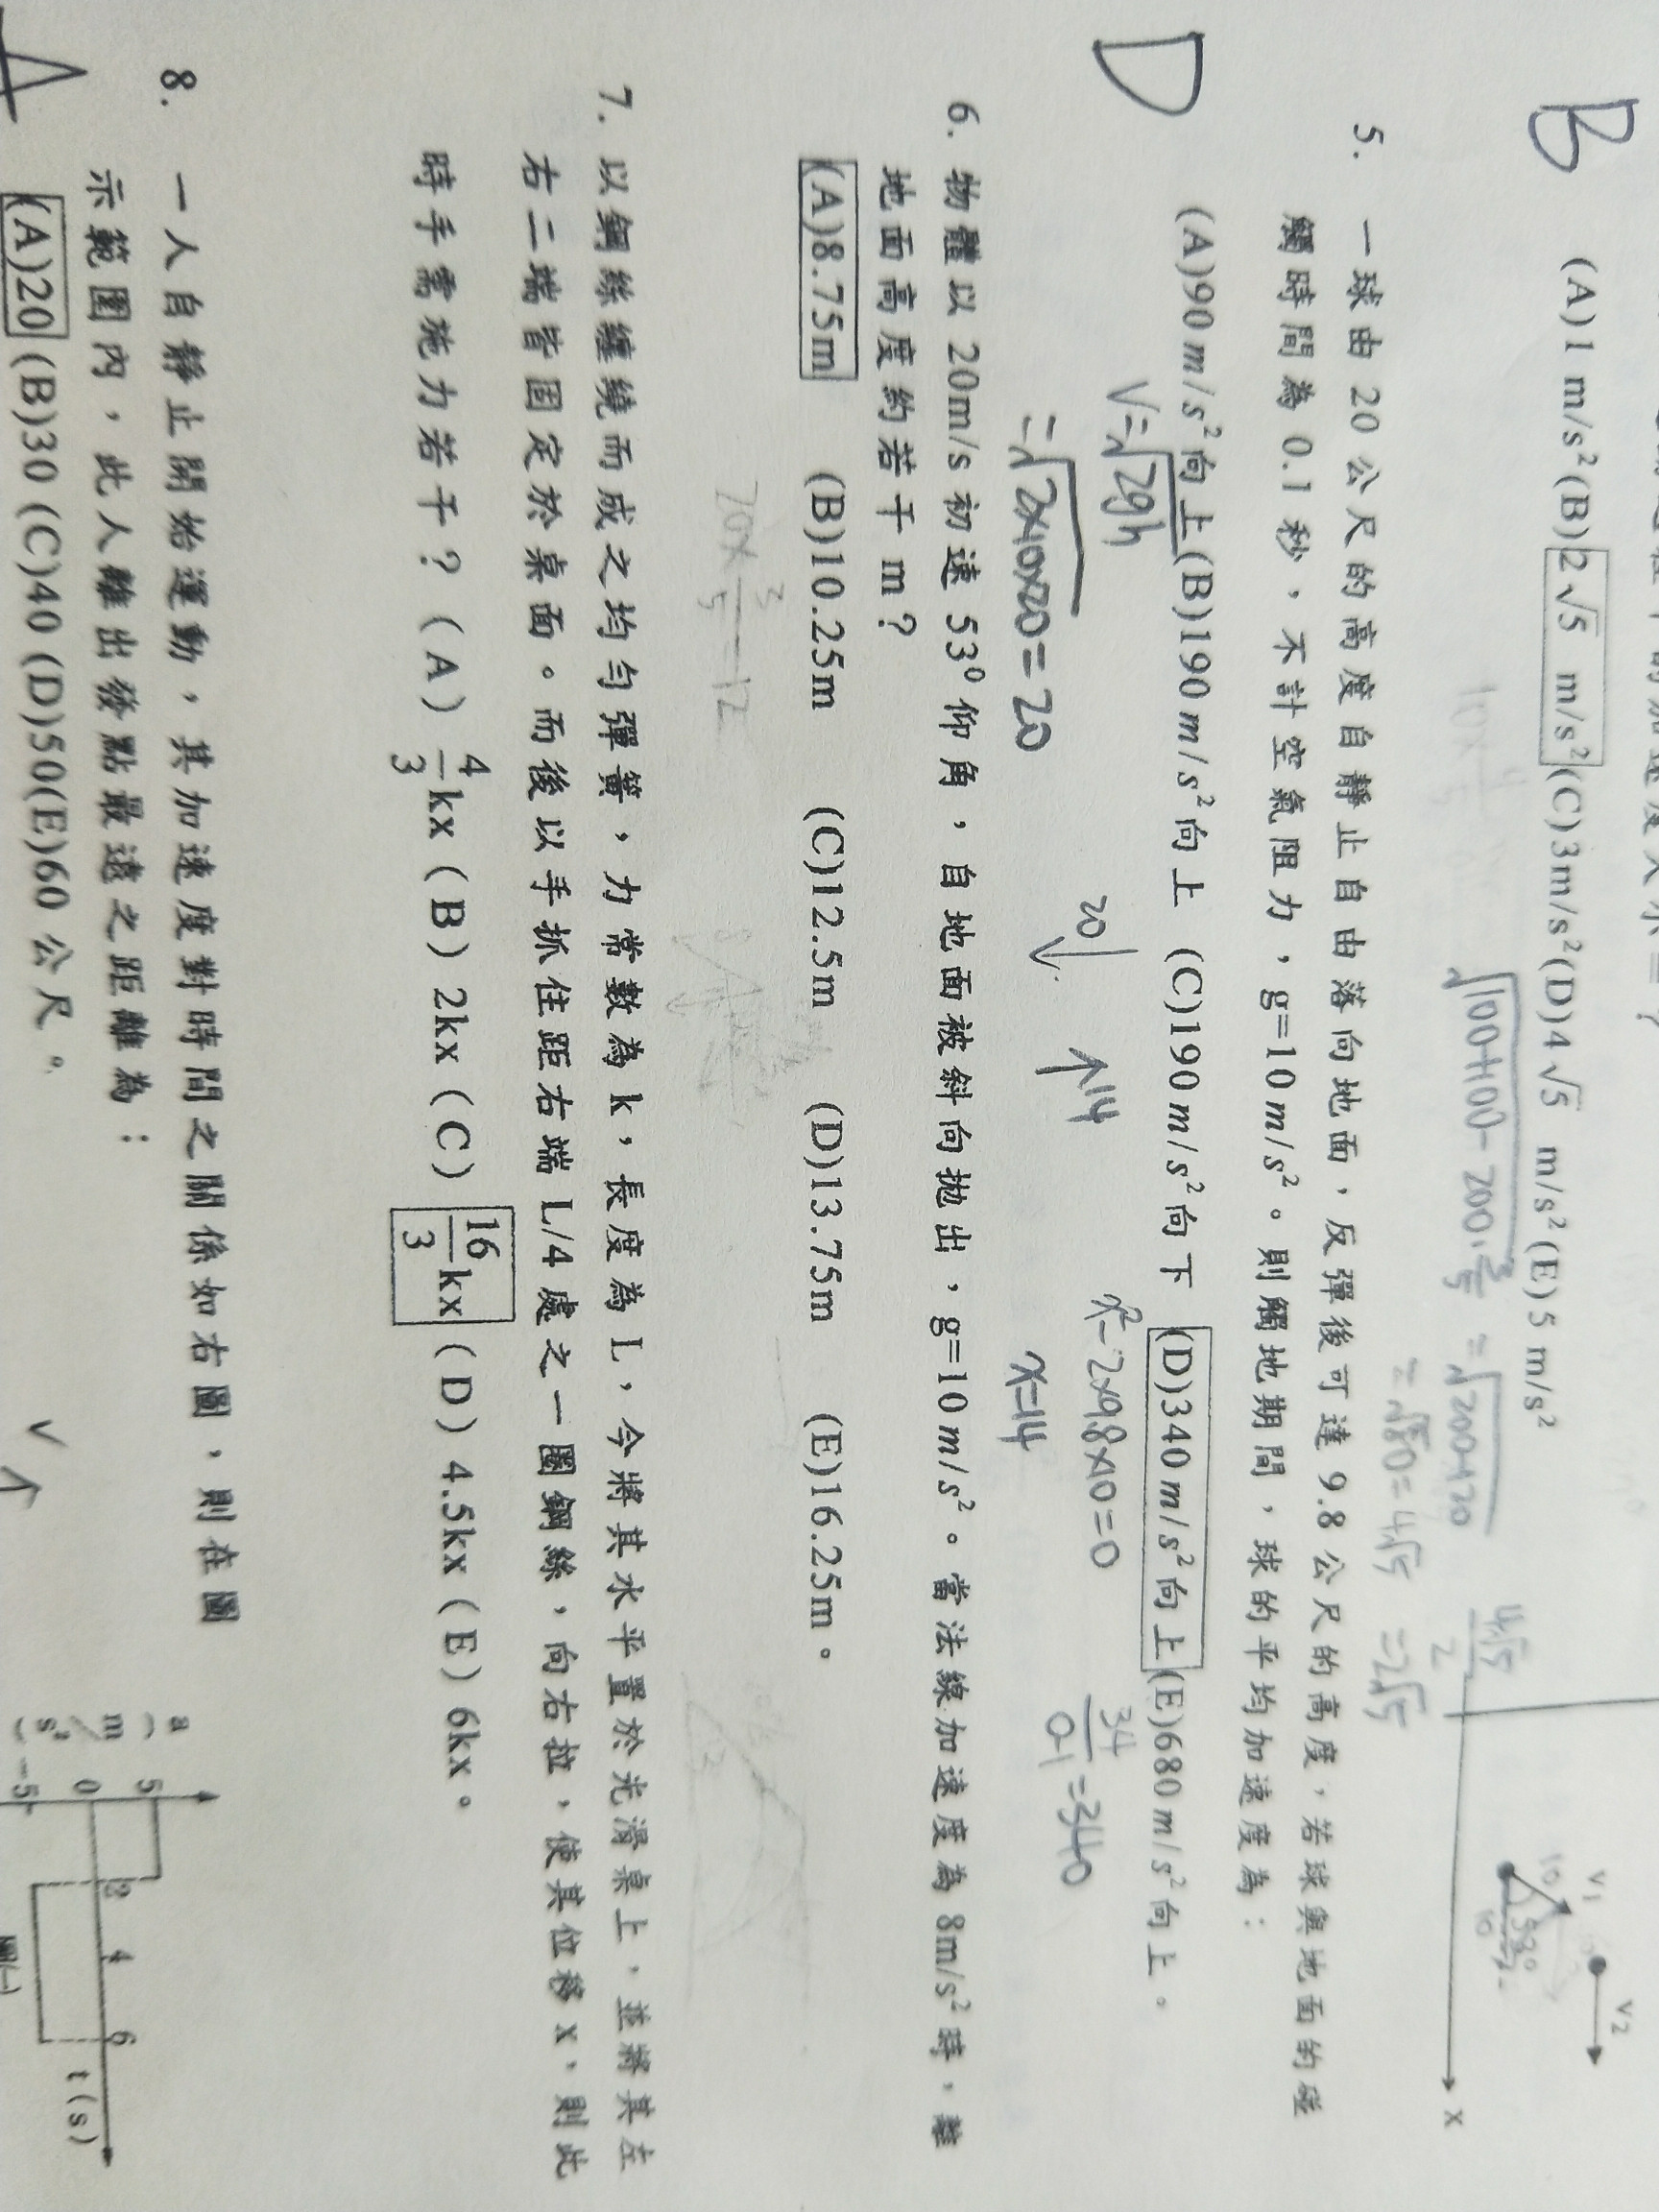 B (A)1 m/s²(B)2√5 m/s²(C)3m/s²(D)4√5 m/s²(E)5 m/s²
√100+100-200·3/5 = √200-120
= √80 = 4√5
4√5/2
= 2√5
V₁
V₂
10
53°
10
x
5. 一球由 20 公尺的高度自靜止自由落向地面，反彈後可達 9.8 公尺的高度，若球與地面的碰
觸時間為 0.1 秒，不計空氣阻力，g=10m/s²。則觸地期間，球的平均加速度為：
D (A)90 m/s²向上(B)190 m/s²向上 (C)190 m/s²向下 (D)340 m/s²向上(E)680 m/s²向上。
V=√2gh
=√2×10×20=20
20↓
↑14
x²-2×9.8×10=0
x=14
34/0.1=340
6. 物體以 20m/s 初速 53⁰ 仰角，自地面被斜向拋出，g=10m/s²。當法線加速度為 8m/s² 時，離
地面高度約若干 m？
(A)8.75m (B)10.25m (C)12.5m (D)13.75m (E)16.25m。
20×3/5=12
7. 以鋼絲纏繞而成之均勻彈簧，力常數為 k，長度為 L，今將其水平置於光滑桌上，並將其左
右二端皆固定於桌面。而後以手抓住距右端 L/4 處之一圈鋼絲，向右拉，使其位移 x，則此
時手需施力若干？（A）4/3kx（B）2kx（C）16/3kx（D）4.5kx（E）6kx。
8. 一人自靜止開始運動，其加速度對時間之關係如右圖，則在圖
示範圍內，此人離出發點最遠之距離為：
A (A)20 (B)30 (C)40 (D)50(E)60 公尺。
V
a
(m/s²)
5
0
-5
2
4
6
t(s)
圖(一)